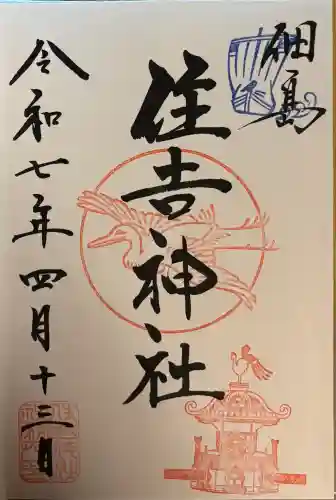 細島
住吉神社
令和七年四月十三日